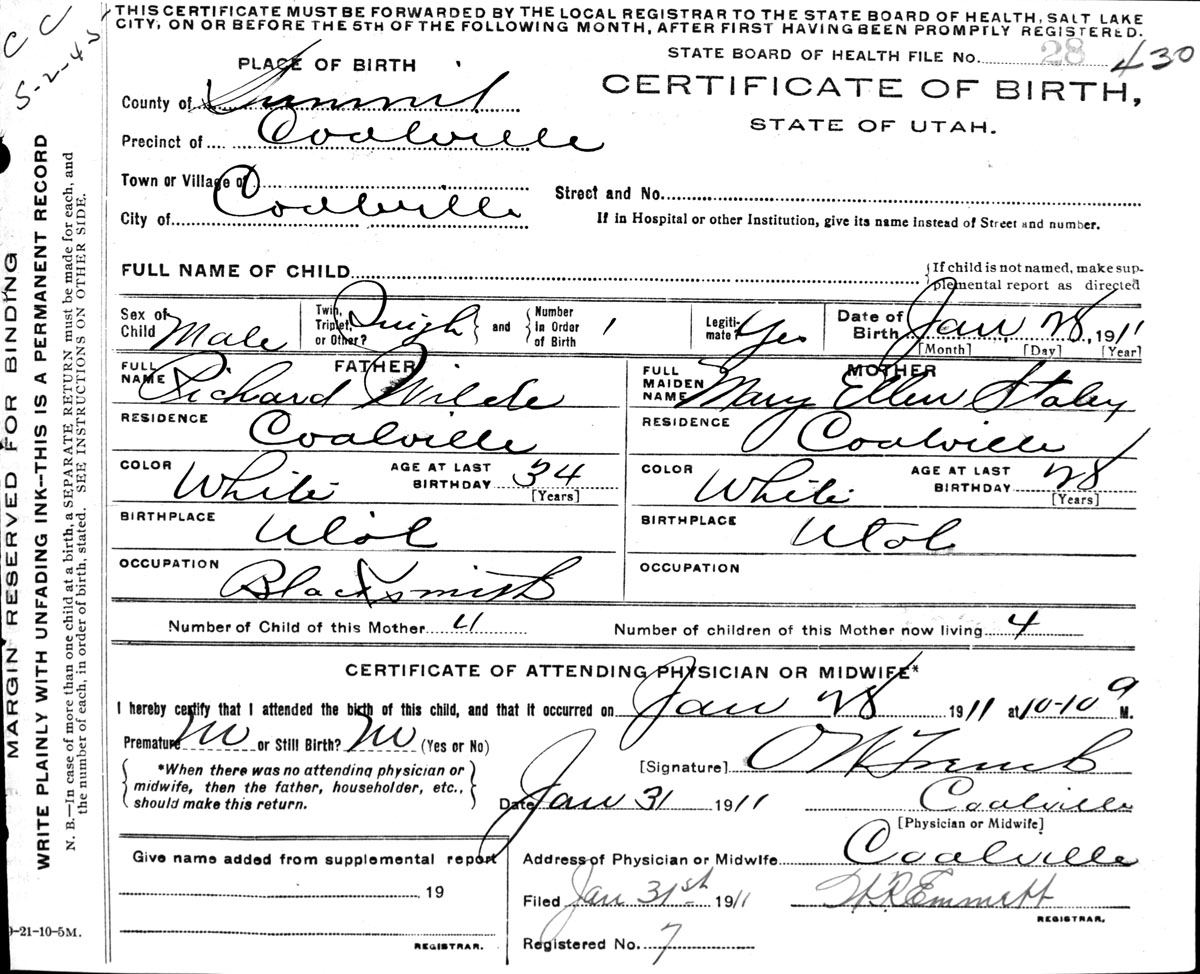 THIS CERTIFICATE MUST BE FORWARDED BY THE LOCAL REGISTRAR TO THE STATE BOARD OF HEALTH, SALT LAKE
CITY, ON OR BEFORE THE 5TH OF THE FOLLOWING MONTH, AFTER FIRST HAVING BEEN PROMPTLY REGISTERED.
C C
5-2-45
STATE BOARD OF HEALTH FILE No. 28 430
PLACE OF BIRTH
CERTIFICATE OF BIRTH,
STATE OF UTAH.
County of Summit
Precinct of Coalville
Town or Village of
City of Coalville
Street and No.
If in Hospital or other Institution, give its name instead of Street and number.
FULL NAME OF CHILD
{If child is not named, make sup-
plemental report as directed
Sex of Child Male
Twin, Triplet, or Other? } and { Number In Order of Birth 1
Legiti-mate? Yes
Date of Birth Jan 28, 1911
[Month] [Day] [Year]
FATHER
FULL NAME Richard Wilde
RESIDENCE Coalville
COLOR White AGE AT LAST BIRTHDAY 34 [Years]
BIRTHPLACE Utah
OCCUPATION Blacksmith
MOTHER
FULL MAIDEN NAME Mary Ellen Staley
RESIDENCE Coalville
COLOR White AGE AT LAST BIRTHDAY 28 [Years]
BIRTHPLACE Utah
OCCUPATION
Number of Child of this Mother 4 Number of children of this Mother now living 4
CERTIFICATE OF ATTENDING PHYSICIAN OR MIDWIFE*
I hereby certify that I attended the birth of this child, and that it occurred on Jan 28 1911 at 10-10 a M.
Premature No or Still Birth? No (Yes or No)
{ *When there was no attending physician or
midwife, then the father, householder, etc.,
should make this return. }
[Signature]
Date Jan 31 1911 Coalville
[Physician or Midwife]
Give name added from supplemental report
19
REGISTRAR.
Address of Physician or Midwife Coalville
Filed Jan 31st 1911 Emmett
REGISTRAR.
Registered No. 7
MARGIN RESERVED FOR BINDING
WRITE PLAINLY WITH UNFADING INK--THIS IS A PERMANENT RECORD
N. B.—In case of more than one child at a birth, a SEPARATE RETURN must be made for each, and
the number of each, in order of birth, stated. SEE INSTRUCTIONS ON OTHER SIDE.
-21-10-5M.